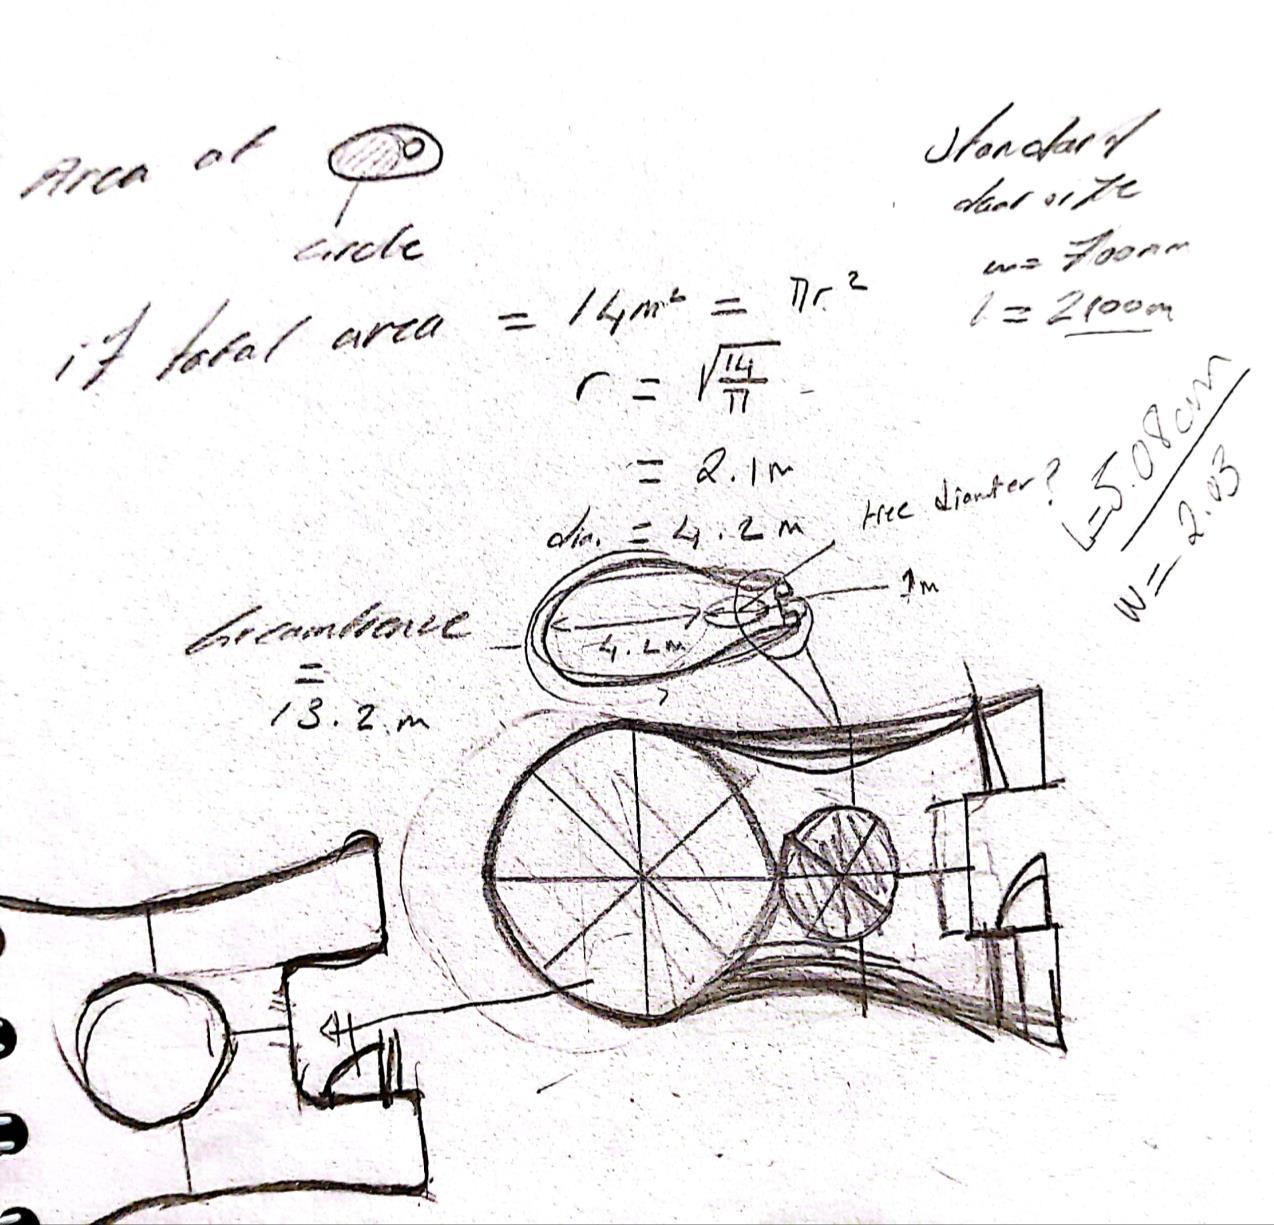 Area of
circle
if total area = 14m² = πr²
r = √14/π
= 2.1m
dia. = 4.2m
Circumference
=
13.2m
4.2m
tree diameter?
1m
Standard
door size
w= 700mm
l = 2100m
L=5.08cm
W=2.03